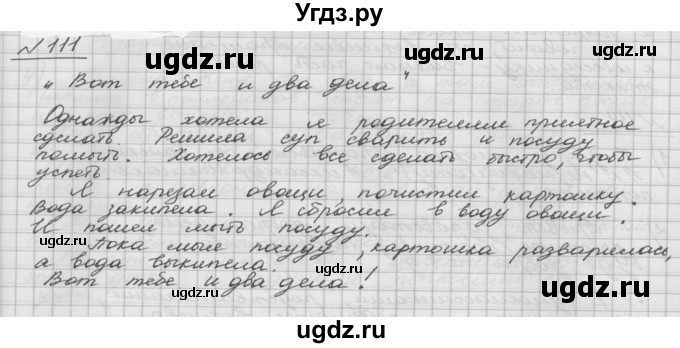 Угдз.ру
№ 111
„Вот тебе и два дела"
Однажды хотела я родителям приятное
сделать Решила суп сварить и посуду
помыть. Хотелось все сделать быстро, чтобы
успеть
Я нарезал овощи, почистил картошку.
Вода закипела. Я сбросил в воду овощи.
И пошел мыть посуду.
Пока мыл посуду, картошка разварилась,
а вода выкипела.
Вот тебе и два дела!
ugdz.ru
ugdz.ru
ugdz.ru
ugdz.ru
ugdz.ru
ugdz.ru
ugdz.ru
ugdz.ru
ugdz.ru
ugdz.ru